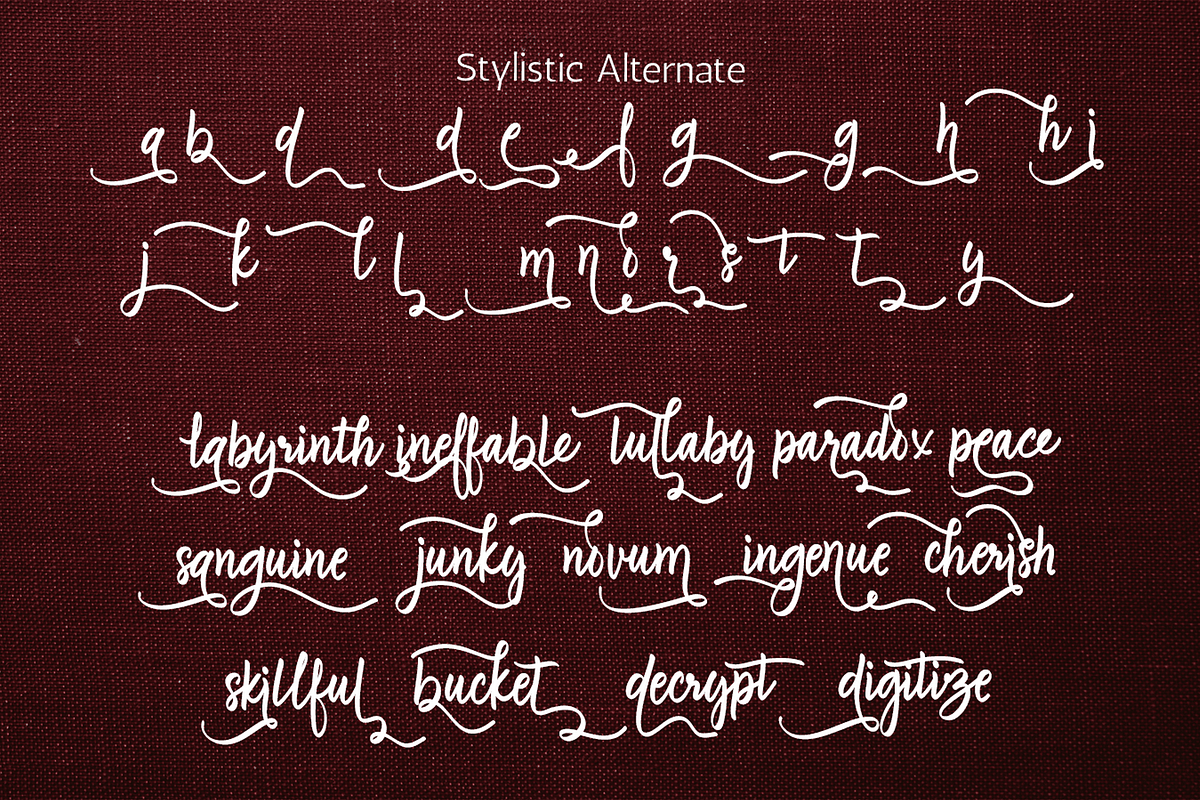 Stylistic Alternate
a b d d e f g g h h i
j k l l m n o r s t t y
labyrinth ineffable lullaby paradox peace
sanguine junky novum ingenue cherish
skillful bucket decrypt digitize